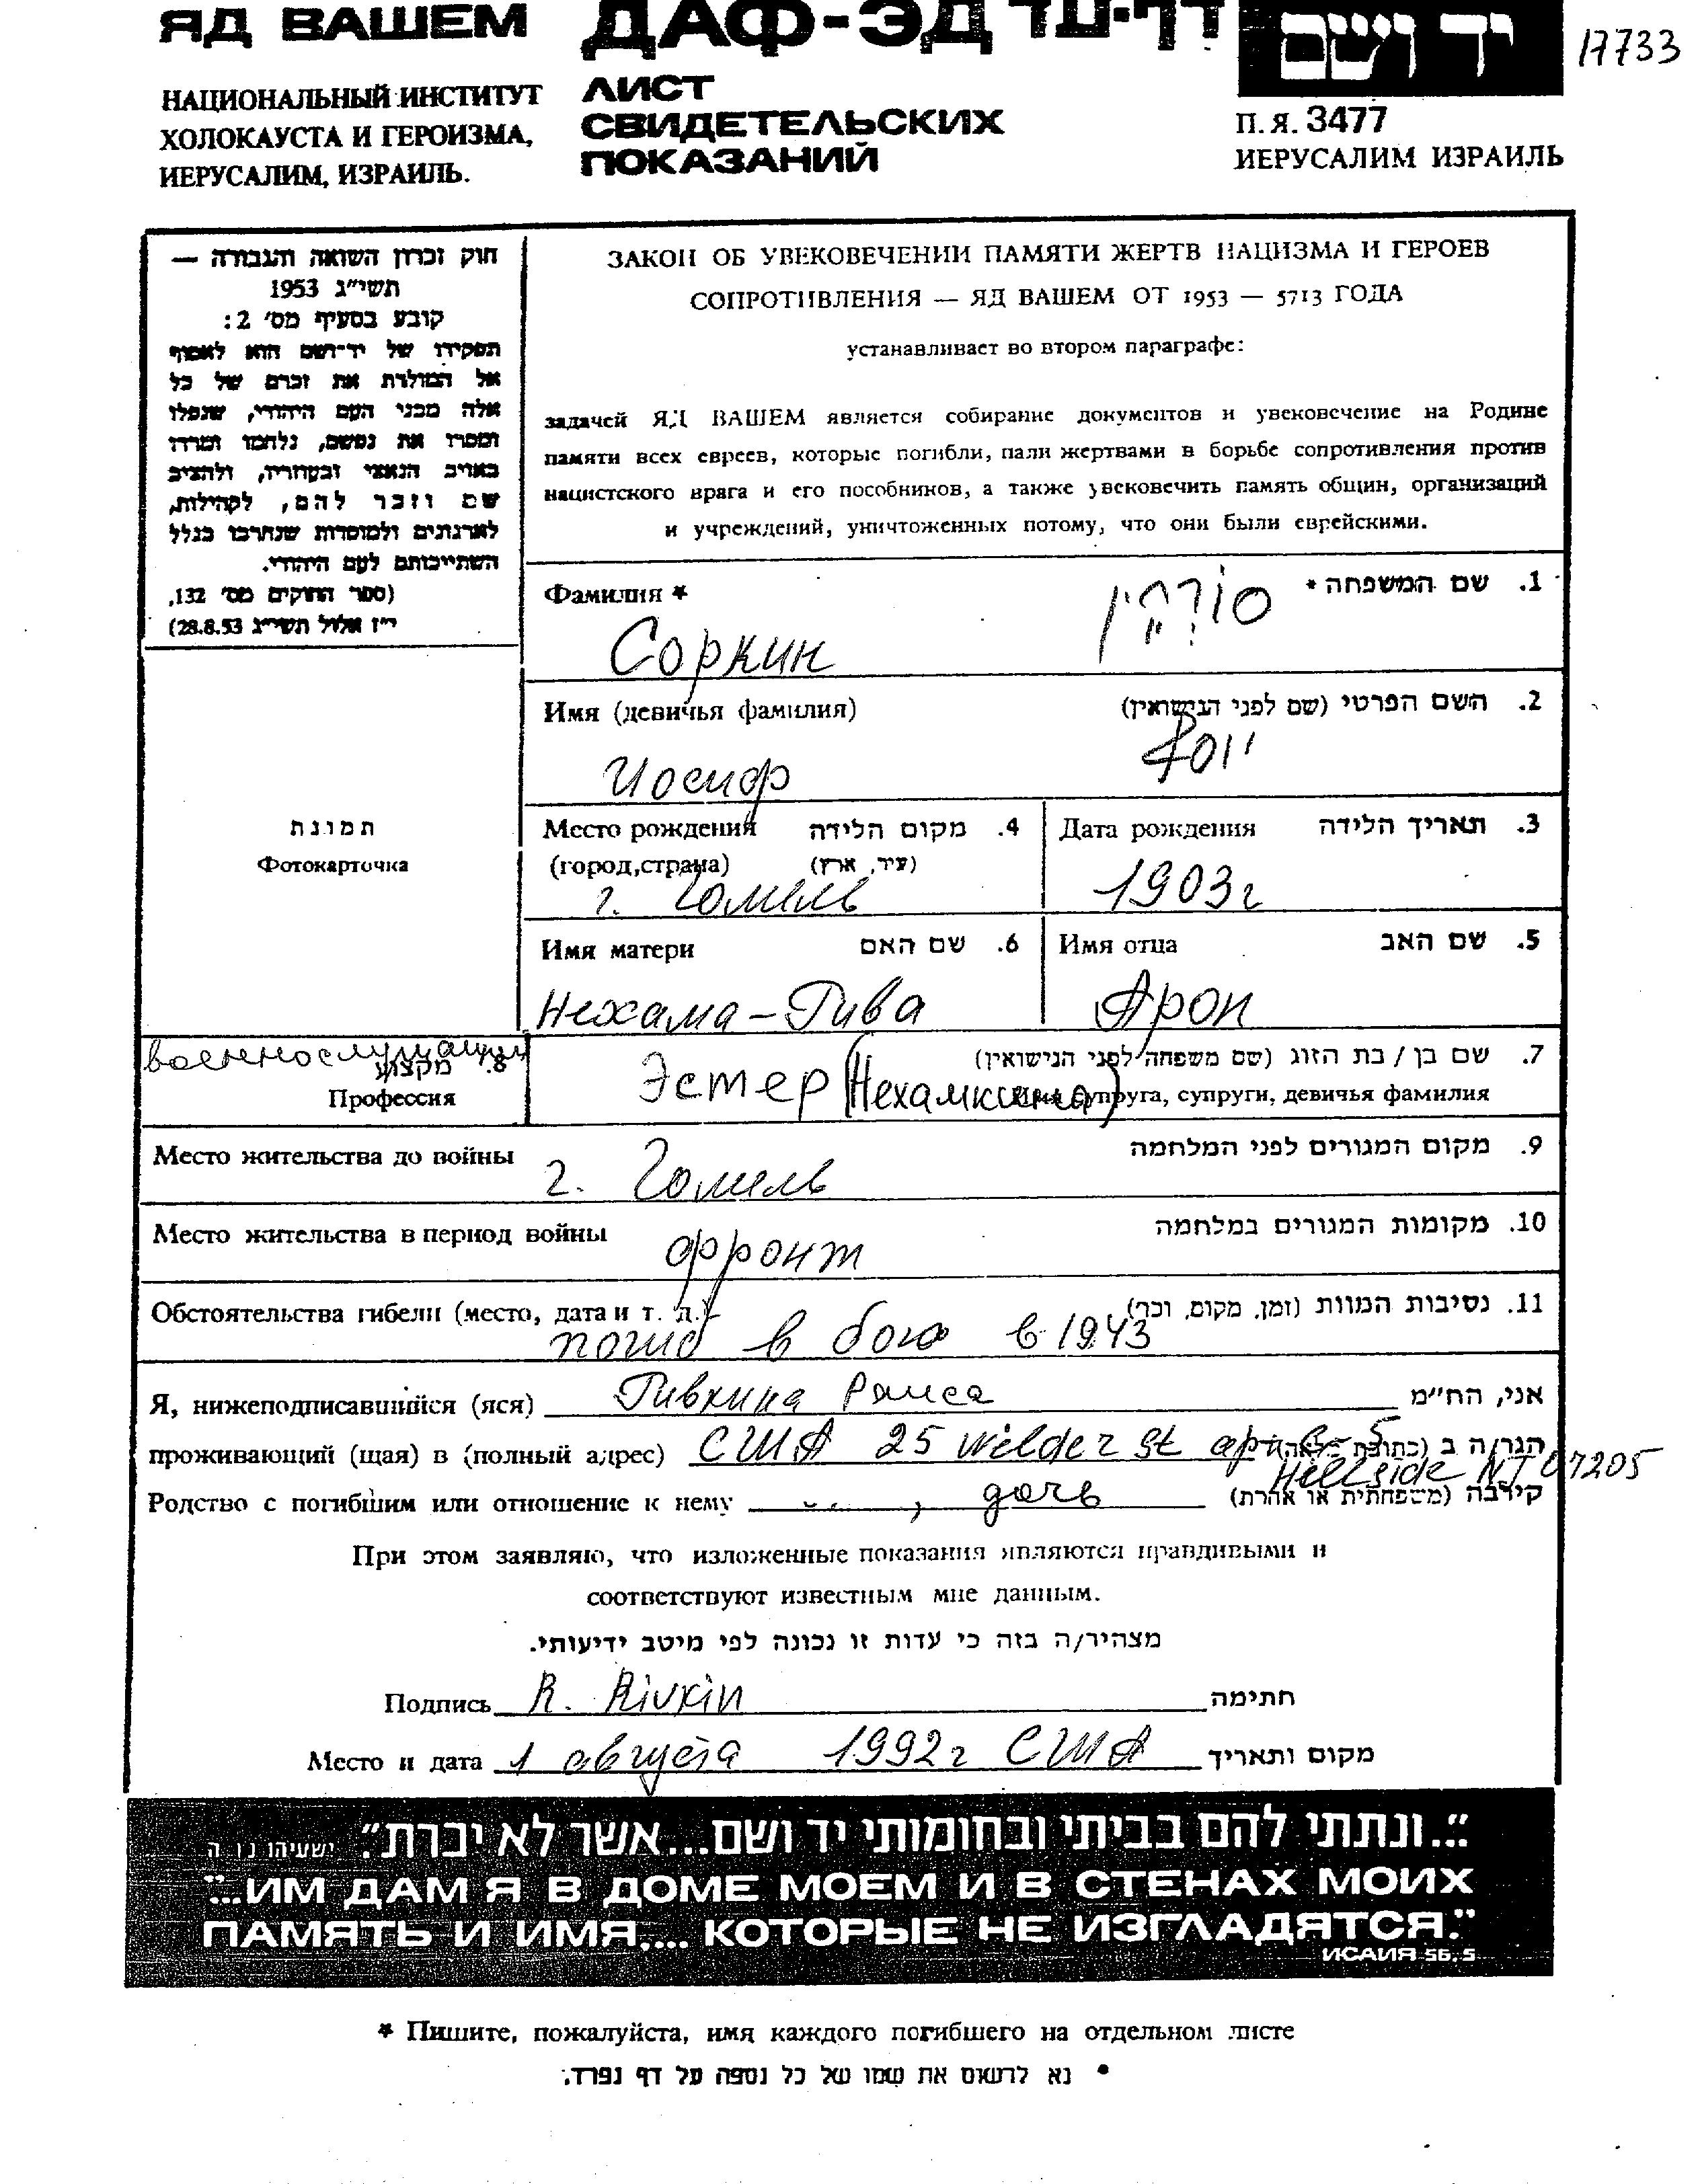 ЯД ВАШЕМ
ДАФ-ЭД דף-עד
יד ושם
17733
НАЦИОНАЛЬНЫЙ ИНСТИТУТ
ХОЛОКАУСТА И ГЕРОИЗМА,
ИЕРУСАЛИМ, ИЗРАИЛЬ.
ЛИСТ
СВИДЕТЕЛЬСКИХ
ПОКАЗАНИЙ
П. Я. 3477
ИЕРУСАЛИМ ИЗРАИЛЬ
חוק זכרון השואה והגבורה —
תשי״ג 1953
קובע בסעיף מס׳ 2:
תפקידו של יד־ושם הוא לאסוף
אל המולדת את זכרם של כל
אלה מבני העם היהודי, שנפלו
ומסרו את נפשם, נלחמו ומרדו
באויב הנאצי ובעוזריו, ולהציב
שם וזכר להם, לקהילות,
לארגונים ולמוסדות שנחרבו בגלל
השתייכותם לעם היהודי.
(ספר החוקים מס׳ 132,
י״ז אלול תשי״ג 28.8.53)
ЗАКОН ОБ УВЕКОВЕЧЕНИИ ПАМЯТИ ЖЕРТВ НАЦИЗМА И ГЕРОЕВ
СОПРОТИВЛЕНИЯ — ЯД ВАШЕМ ОТ 1953 — 5713 ГОДА
устанавливает во втором параграфе:
задачей ЯД ВАШЕМ является собирание документов и увековечение на Родине
памяти всех евреев, которые погибли, пали жертвами в борьбе сопротивления против
нацистского врага и его пособников, а также увековечить память общин, организаций
и учреждений, уничтоженных потому, что они были еврейскими.
Фамилия * 1. שם המשפחה *
Соркин סורקין
Имя (девичья фамилия) 2. השם הפרטי (שם לפני הנישואין)
Иосиф יוסף
תמונה
Фотокарточка
Место рождения 4. מקום הלידה
(город,страна) (עיר, ארץ)
г. Гомель
Дата рождения 3. תאריך הלידה
1903г
Имя матери 6. שם האם
Нехама-Рива
Имя отца 5. שם האב
Арон
военнослужащий
8. מקצוע
Профессия
7. שם בן / בת הזוג (שם משפחה לפני הנישואין)
Эстер (Нехамкина)
супруга, супруги, девичья фамилия
Место жительства до войны 9. מקום המגורים לפני המלחמה
г. Гомель
Место жительства в период войны 10. מקומות המגורים במלחמה
фронт
Обстоятельства гибели (место, дата и т. д.) 11. נסיבות המוות (זמן, מקום, וכר)
погиб в бою в 1943
Я, нижеподписавшийся (яся) Ривкина Раиса אני, הח״מ
проживающий (щая) в (полный адрес) США 25 Wilder st apt B-5 הגר/ה ב
Hillside NJ 07205
Родство с погибшим или отношение к нему , дочь קירבה (משפחתית או אחרת)
При этом заявляю, что изложенные показания являются правдивыми и
соответствуют известным мне данным.
מצהיר/ה בזה כי עדות זו נכונה לפי מיטב ידיעותי.
Подпись R. Rivkin חתימה
Место и дата 1 августа 1992г США מקום ותאריך
"...ונתתי להם בביתי ובחומותי יד ושם...אשר לא יכרת". ישעיהו נו ה
"...ИМ ДАМ Я В ДОМЕ МОЕМ И В СТЕНАХ МОИХ
ПАМЯТЬ И ИМЯ.... КОТОРЫЕ НЕ ИЗГЛАДЯТСЯ."
ИСАИЯ 56. 5
* Пишите, пожалуйста, имя каждого погибшего на отдельном листе
* נא לרשום את שמו של כל נספה על דף נפרד.